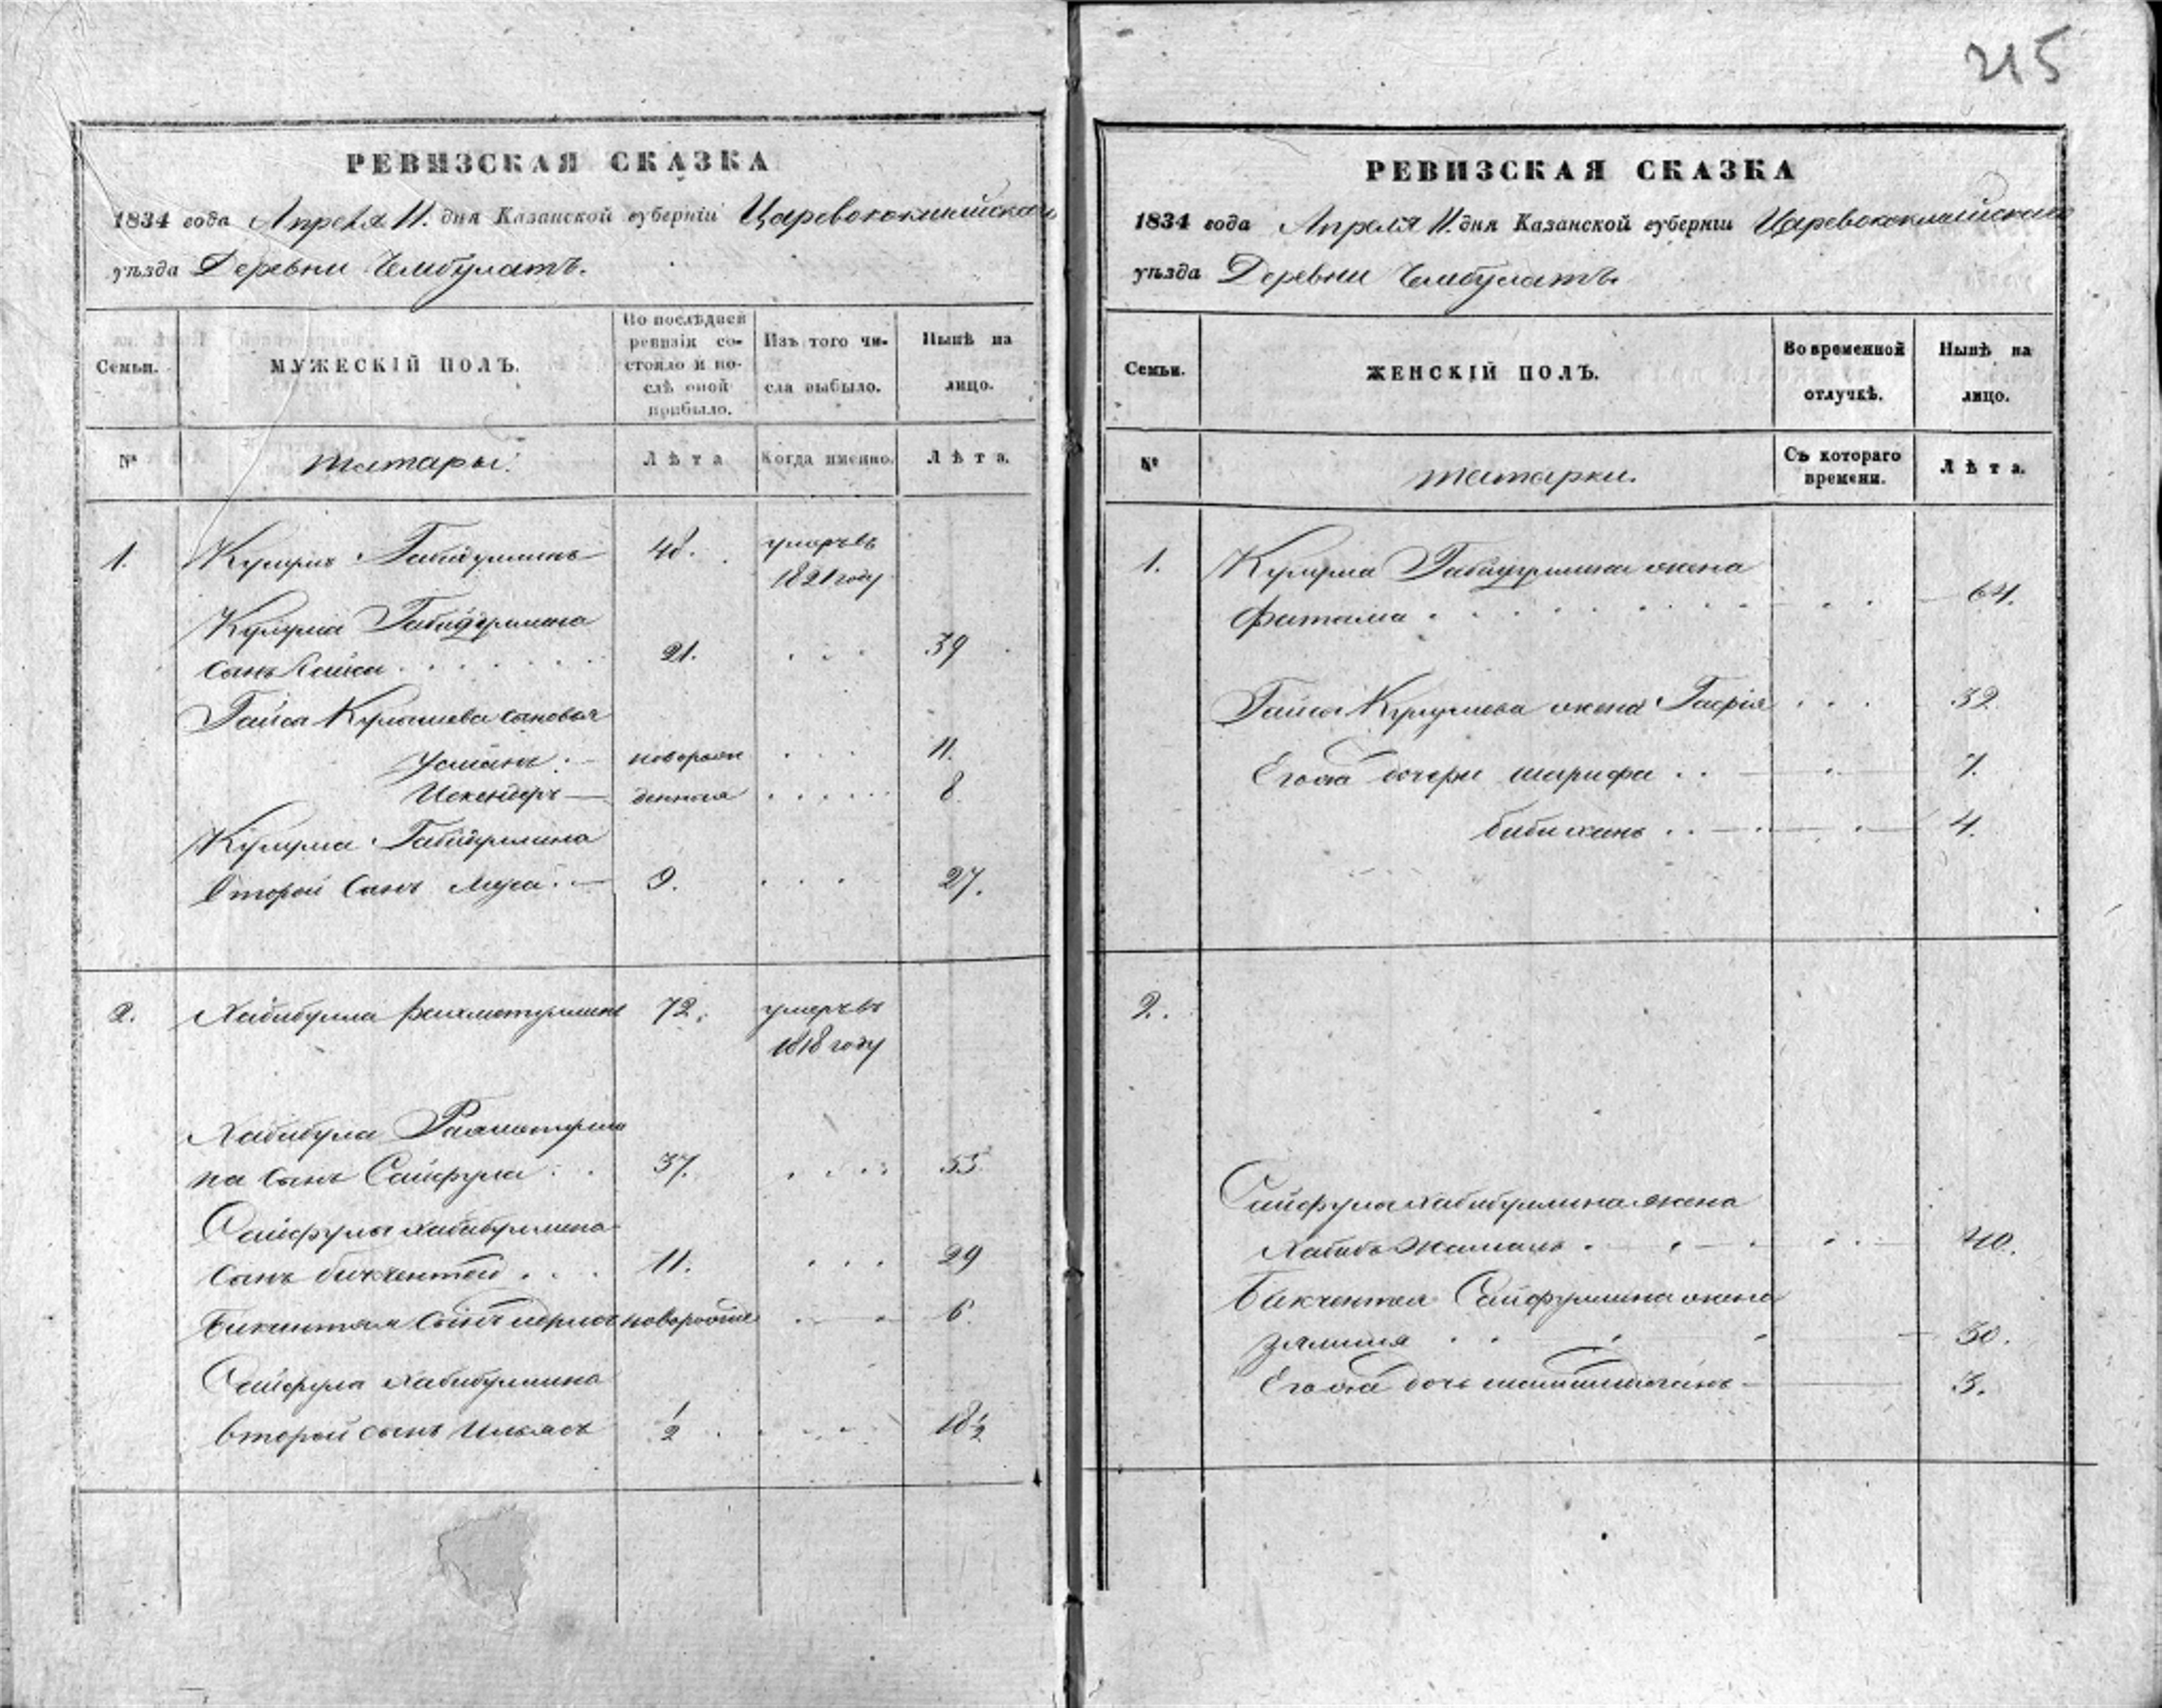 215
РЕВИЗСКАЯ СКАЗКА
1834 года Апреля 11. дня Казанской губернiи Царевококшайскаго
уѣзда Деревни Чембулатъ.
Семьи.
МУЖЕСКIЙ ПОЛЪ.
По послѣдней
ревизiи со-
стояло и по-
слѣ оной
прибыло.
Изъ того чи-
сла выбыло.
Нынѣ на
лицо.
№
татары.
Лѣта
Когда именно.
Лѣта.
1. Кулумъ Габидуллинъ 48. умеръ въ
1821 году
Кулума Габидуллина
сынъ Гайса 21. 39
Гайсы Кулумева сыновья
Усманъ новорож 11.
Искендеръ денныя 8.
Кулума Габидуллина
второй сынъ Муса 9. 27.
2. Хабибулла Рахматуллинъ 72. умеръ въ
1818 году
Хабибула Рахматулли
на сынъ Сайфула 37. 55.
Сайфулы Хабибуллина
сынъ Бикчентей 11. 29
сынъ новорожде 6.
Сайфула Хабибуллина
второй сынъ Ильясъ 1/2 18 1/2
РЕВИЗСКАЯ СКАЗКА
1834 года Апреля 11. дня Казанской губернiи Царевококшайскаго
уѣзда Деревни Чембулатъ.
Семьи.
ЖЕНСКIЙ ПОЛЪ.
Во временной
отлучкѣ.
Нынѣ на
лицо.
№
татарки.
Съ котораго
времени.
Лѣта.
1. Кулума Габидуллина жена
Фатама 64.
Гайсы Кулумева жена 32.
Его жа дочери Шарифа 7.
Бибиханъ 4.
2.
Сайфула Хабибуллина жена
Хабибъ Жамалъ 40.
Бикчентея Сайфуллина жена
30.
Его жа дочь 3.